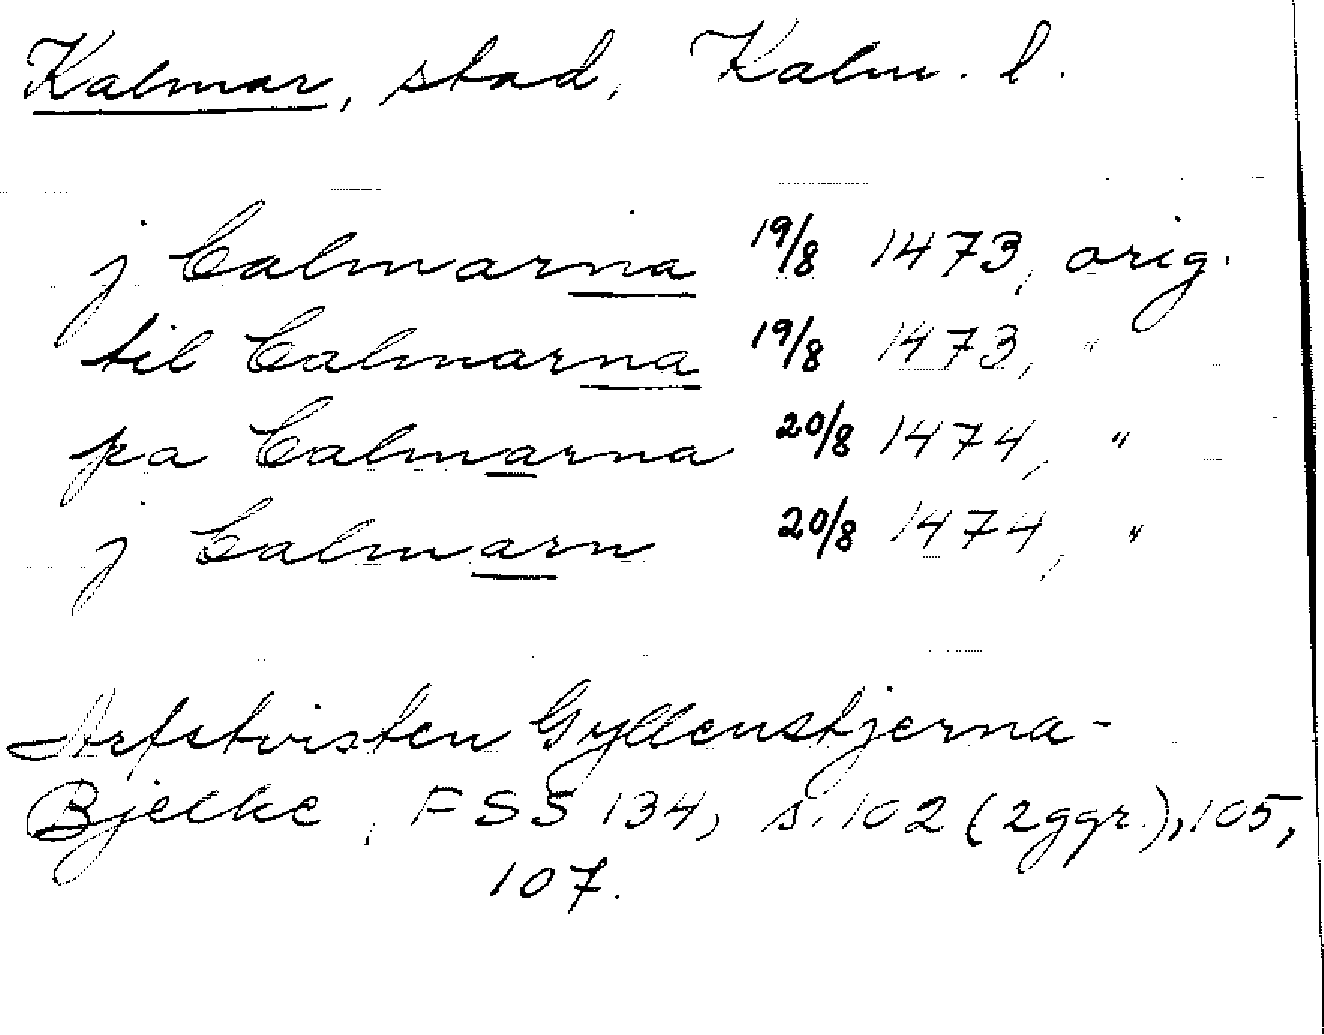 Kalmar, stad, Kalm. l.
j Calmarna 19/8 1473, orig.
til Calmarna 19/8 1473, "
pa Calmarna 20/8 1474, "
j Calmarn 20/8 1474, "
Arfstvisten Gyllenstjerna-
Bjelke, FSS 134, s. 102 (2ggr.), 105,
107.